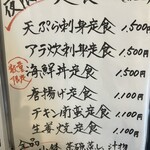 天ぷら刺身定食 1,500円
アラ炊刺身定食 1,500円
数量限定 海鮮丼定食 1,500円
唐揚げ定食 1,100円
チキン南蛮定食 1,100円
生姜焼定食 1,100円
小鉢 茶碗蒸し 汁物